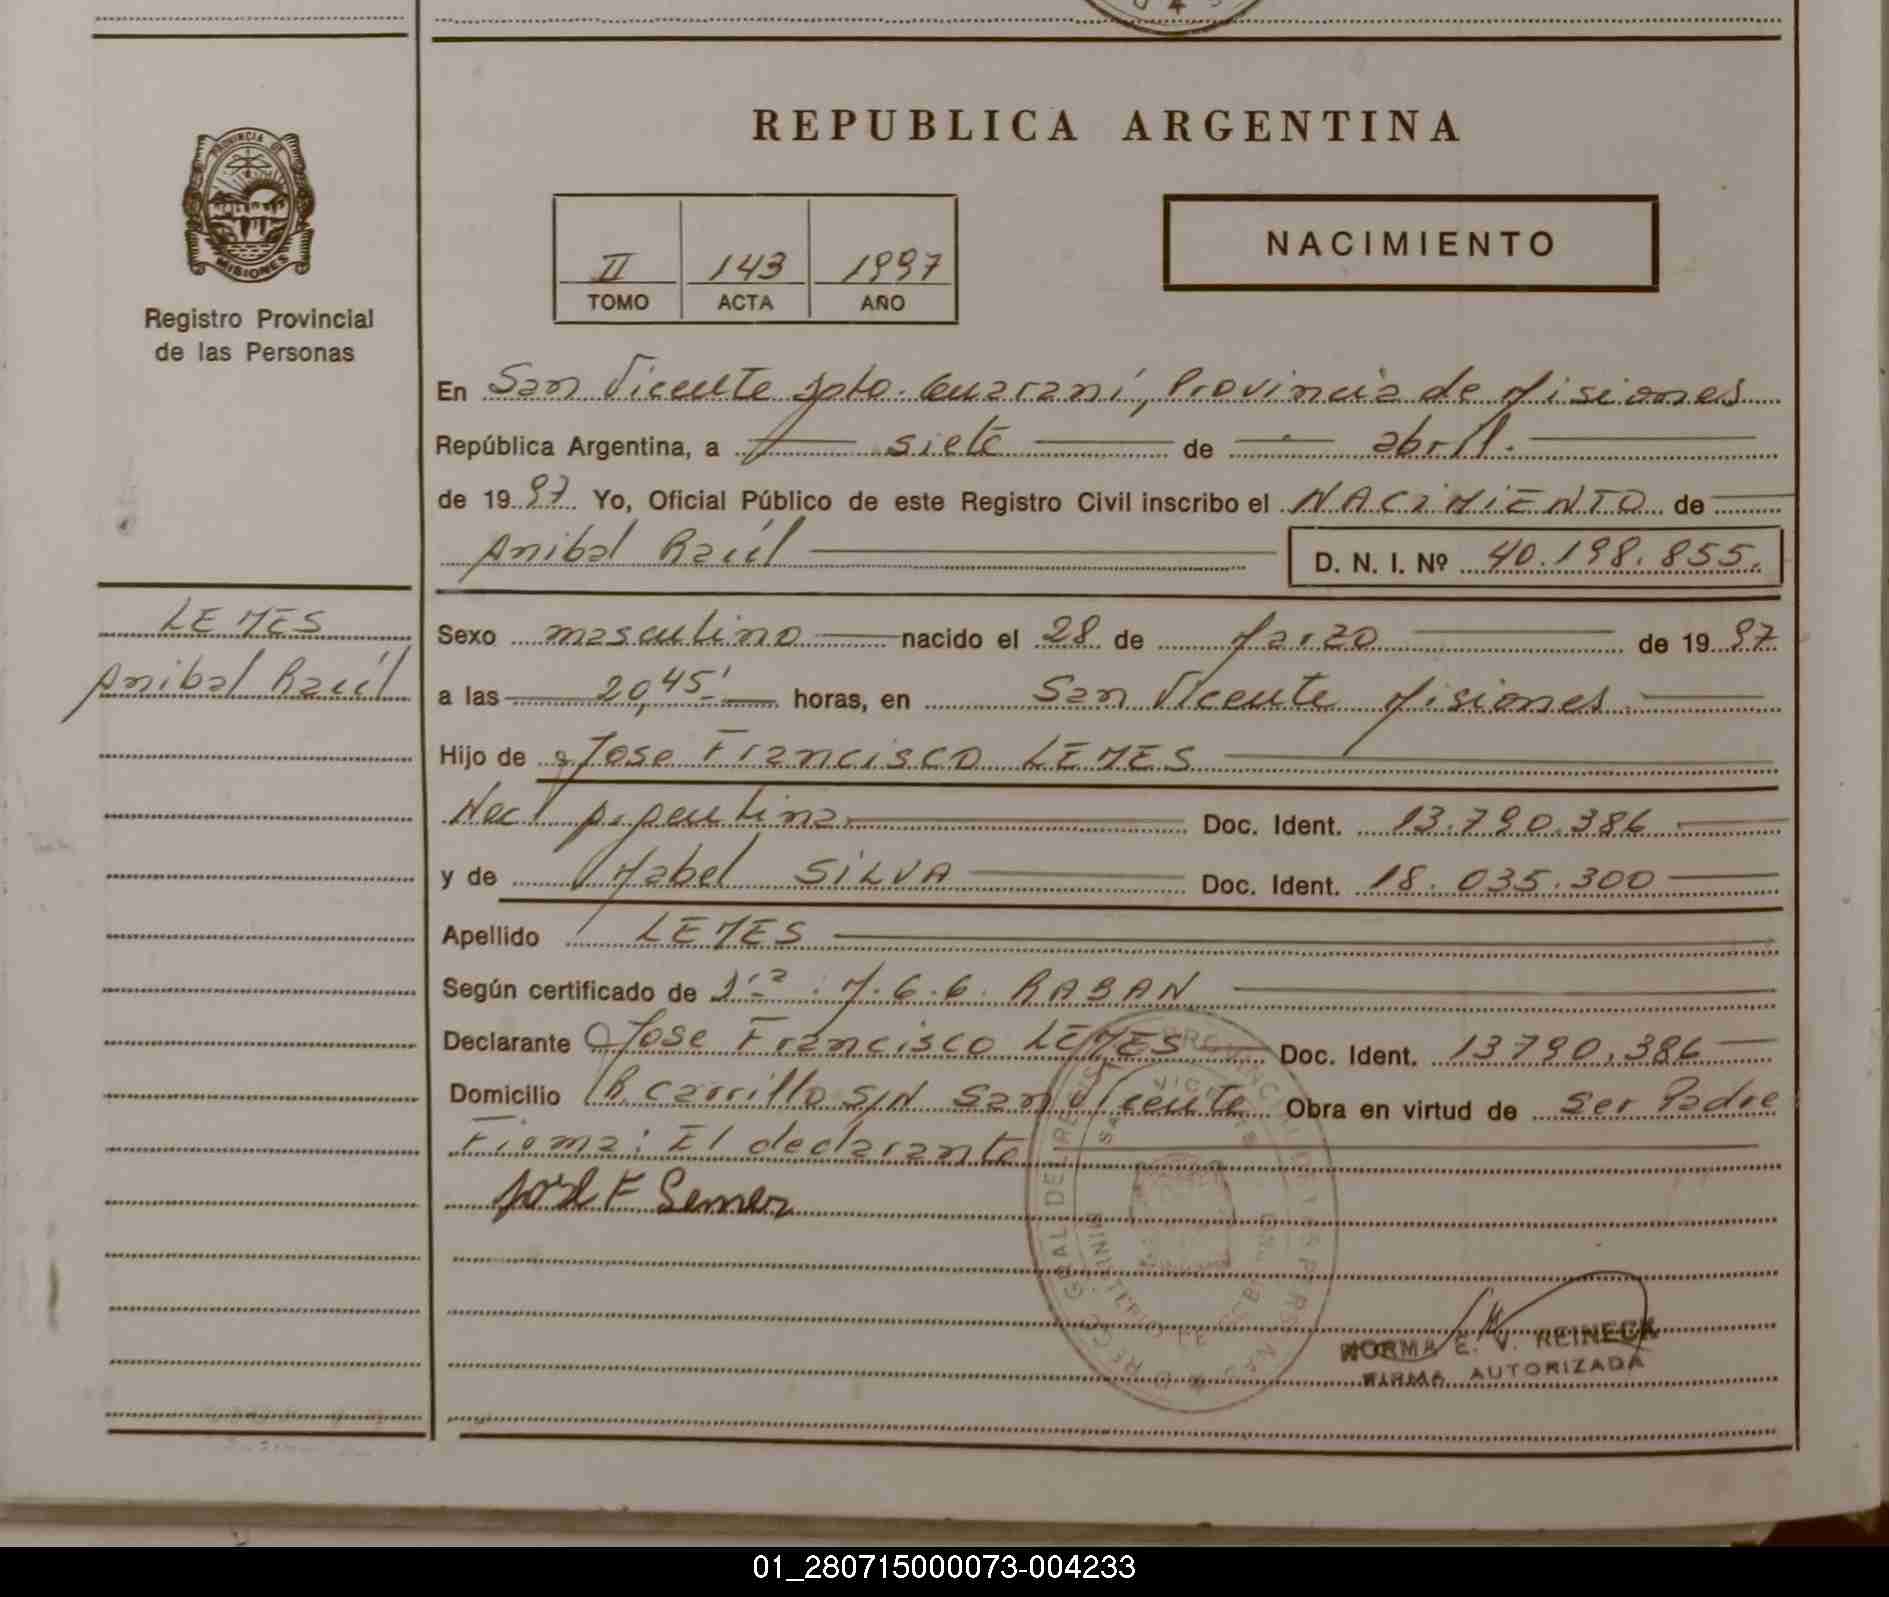 REPUBLICA ARGENTINA
PROVINCIA DE
MISIONES
Registro Provincial
de las Personas
II 143 1997
TOMO ACTA AÑO
NACIMIENTO
En San Vicente Dpto. Guaraní, Provincia de Misiones
República Argentina, a siete de abril.
de 1997 Yo, Oficial Público de este Registro Civil inscribo el NACIMIENTO de
Anibal Raúl D. N. I. Nº 40.198.855.
LEMES
Anibal Raúl
Sexo masculino nacido el 28 de Marzo de 1997
a las 20,45' horas, en San Vicente Misiones
Hijo de Jose Francisco LEMES
Nac. Argentina Doc. Ident. 13.790.386
y de Mabel SILVA Doc. Ident. 18.035.300
Apellido LEMES
Según certificado de M. G. G. RABAN
Declarante Jose Francisco LEMES Doc. Ident. 13790.386
Domicilio R. Carrillo S/N San Vicente Obra en virtud de ser Padre
Firma: El declarante
José F Lemes
NORMA E. V. REINECK
FIRMA AUTORIZADA
01_280715000073-004233